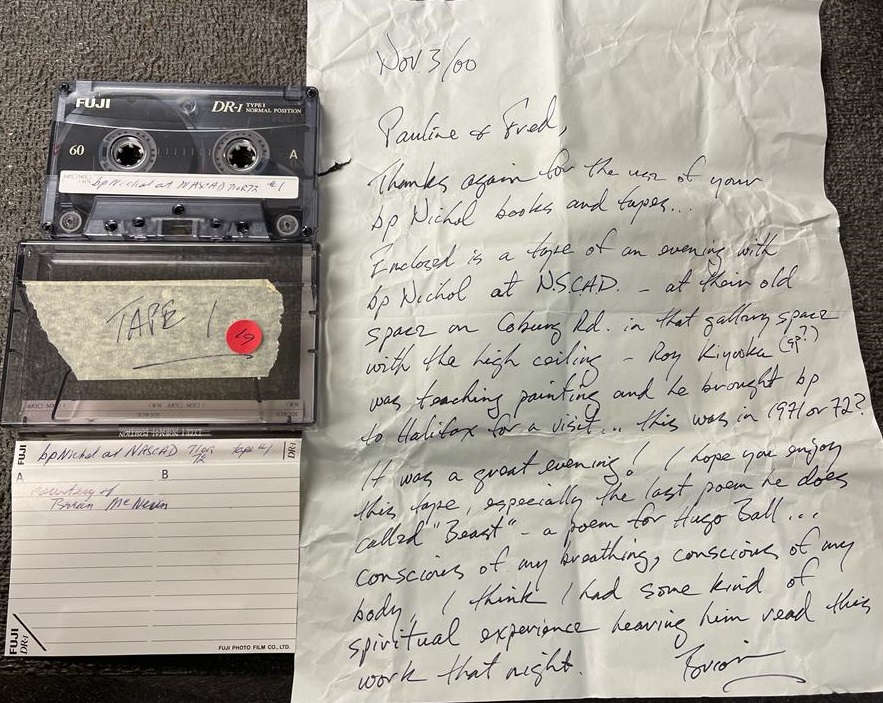 FUJI
DR-I TYPE I NORMAL POSITION
60
A
bp Nichol at NASCAD 71or72 #1
TAPE 1
19
FUJI
bp Nichol at NASCAD 71or 72 tape #1
DR-I
A
B
courtesy of
Brian McNevin
FUJI
DR-I
FUJI PHOTO FILM CO., LTD.
Nov 3/00
Pauline & Fred,
Thanks again for the use of your
bp Nichol books and tapes...
Enclosed is a tape of an evening with
bp Nichol at N.S.C.A.D. - at their old
space on Coburg Rd. in that gallery space
with the high ceiling - Roy Kiyooka (sp?)
was teaching painting and he brought bp
to Halifax for a visit... this was in 1971 or 72?
It was a great evening! I hope you enjoy
this tape, especially the last poem he does
called "Beast" - a poem for Hugo Ball...
conscious of my breathing, conscious of my
body, I think I had some kind of
spiritual experience hearing him read this
work that night.
Brian